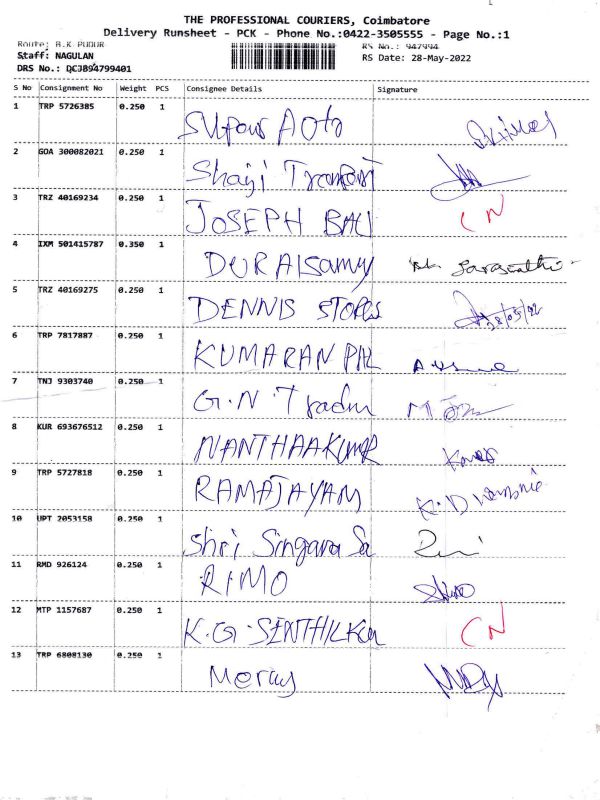 THE PROFESSIONAL COURIERS, Coimbatore
Delivery Runsheet - PCK - Phone No.:0422-3505555 - Page No.:1
Route: B.K.PUDUR RS No.: 947994
Staff: NAGULAN RS Date: 28-May-2022
DRS No.: QCJ894799401
S No Consignment No Weight PCS Consignee Details Signature
1 TRP 5726385 0.250 1 Supour Auto
2 GOA 300082021 0.250 1 Shaji
3 TRZ 40169234 0.250 1 JOSEPH BAU CN
4 IXM 501415787 0.350 1 DURAISamy
5 TRZ 40169275 0.250 1 DENNIS STOPES 28/05/22
6 TRP 7817887 0.250 1 KUMARAN
7 TNJ 9303740 0.250 1 G.N Tradin
8 KUR 693676512 0.250 1 NANTHAAKUMAR
9 TRP 5727818 0.250 1 RAMAJAYAM
10 UPT 2053158 0.250 1 Shri Singara Sa
11 RMD 926124 0.250 1 RIMO
12 MTP 1157687 0.250 1 K.G. SENTHILKUM CN
13 TRP 6808130 0.250 1 Mercy